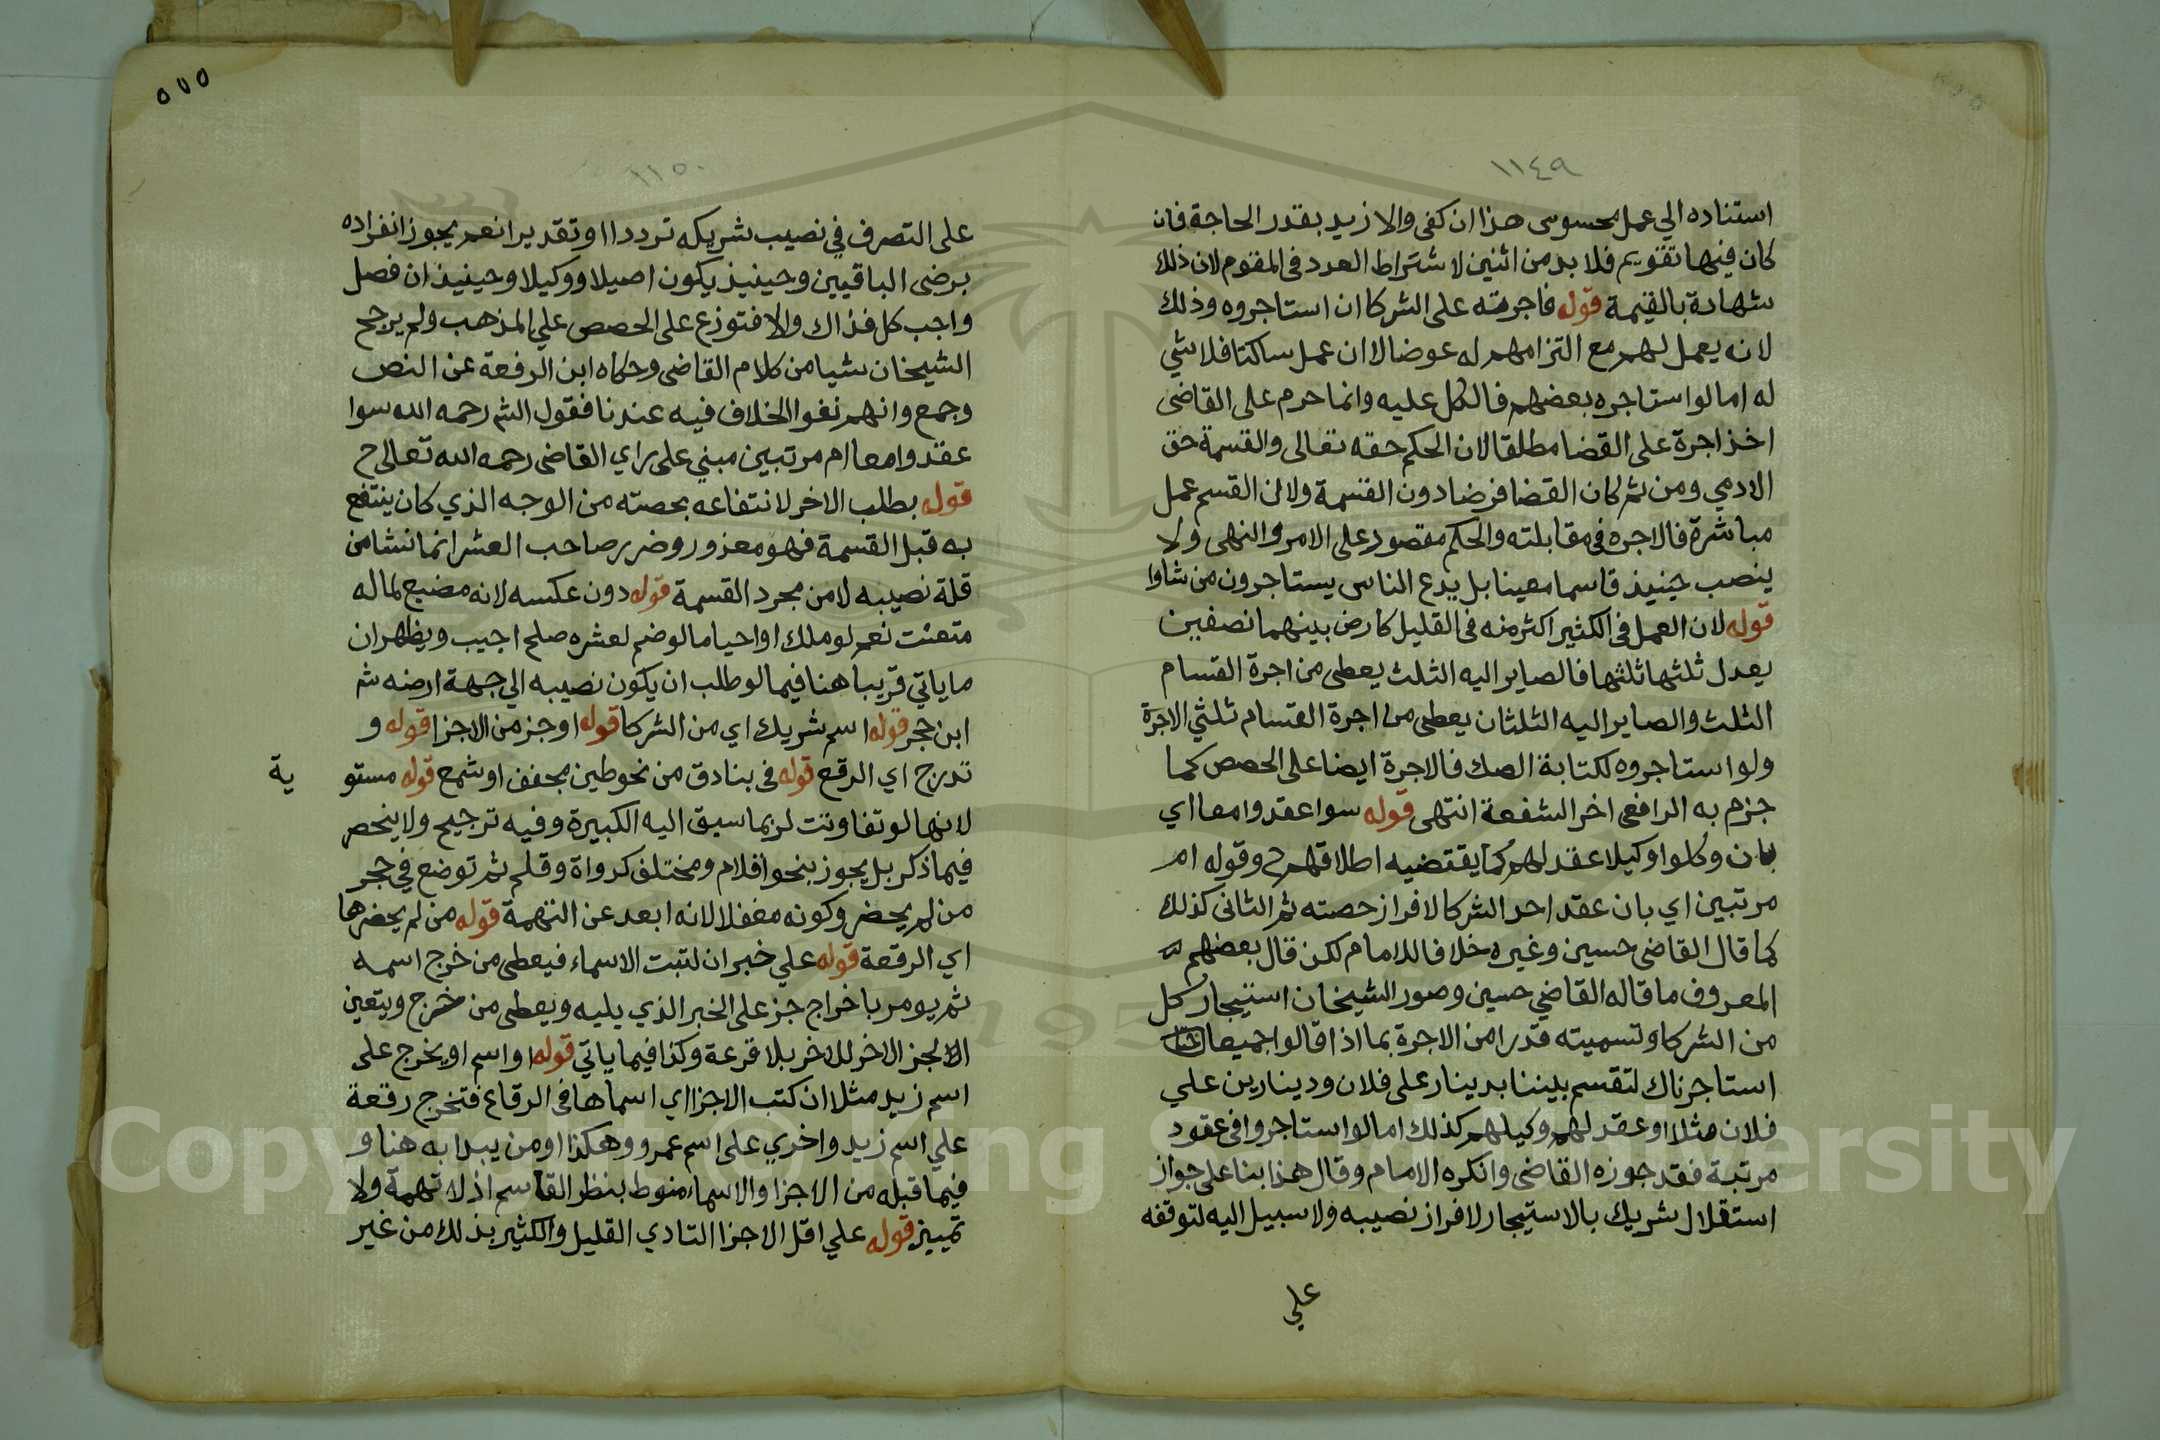 ١١٤٩
استناده الي عمل محسوس هذا ان كفى والا زيد بقدر الحاجة فان
كان فيها تقويم فلا بد من اثنين لاشتراط العدد في المقوم لان ذلك
شهادة بالقيمة قوله فاجرته على الشركا ان استاجروه وذلك
لانه يعمل لهم مع التزامهم له عوضا لا ان عمل ساكتا فلا شي
له اما لو استاجره بعضهم فالكل عليه وانما حرم على القاضي
اخذ اجرة على القضا مطلقا لان الحكم حقه تعالى والقسمة حق
الادمي ومن ثم كان القضا فرضا دون القسمة ولان القسم عمل
مباشرة فالاجرة في مقابلته والحكم مقصور على الامر والنهى ولا
ينصب حينيذ قاسما معينا بل يدع الناس يستاجرون من شاوا
قوله لان العمل في الكثير اكثر منه في القليل كارض بينهما نصفين
يعدل ثلثها ثلثيها فالصاير اليه الثلث يعطى من اجرة القسام
الثلث والصاير اليه الثلثان يعطى من اجرة القسام ثلثي الاجرة
ولو استاجروه لكتابة الصك فالاجرة ايضا على الحصص كما
جزم به الرافعي اخر الشفعة انتهى قوله سوا عقدوا معا اي
بان وكلوا وكيلا عقد لهم كما يقتضيه اطلاقهم وقوله ام
مرتبين اي بان عقد احد الشركا لافراز حصته ثم الثاني كذلك
كما قال القاضي حسين وغيره خلافا للامام لكن قال بعضهم
المعروف ما قاله القاضي حسين وصور الشيخان استيجار كل
من الشركا وتسميته قدرا من الاجرة بما اذا قالوا جميعا
استاجرناك لتقسم بيننا بدينار على فلان ودينارين علي
فلان مثلا او عقد لهم وكيلهم كذلك اما لو استاجروا في عقود
مرتبة فقد جوزه القاضي وانكره الامام وقال هذا بنا على جواز
استقلال شريك بالاستيجار لافراز نصيبه ولا سبيل اليه لتوقفه
علي
٥٧٥
١١٥٠
على التصرف في نصيب شريكه ترددا او تقديرا نعم يجوز انفراده
برضى الباقيين وحينيذ يكون اصيلا ووكيلا وحينيذ ان فصل
واجب كل فذاك والا فتوزع على الحصص علي المذهب ولم يرجح
الشيخان شيا من كلام القاضي وحكاه ابن الرفعة عن النص
وجمع وانهم نفوا الخلاف فيه عندنا فقول الشم رحمه الله سوا
عقدوا معا ام مرتبين مبني على راي القاضي رحمه الله تعالى ح
قوله بطلب الاخر لانتفاعه بحصته من الوجه الذي كان ينتفع
به قبل القسمة فهو معذور وضرر صاحب العشر انما نشا من
قلة نصيبه لا من مجرد القسمة قوله دون عكسه لانه مضيع لماله
متعنت نعم لو ملك او احيا ما لو ضم لعشره صلح اجيب ويظهر ان
ما ياتي قريبا هنا فيما لو طلب ان يكون نصيبه الي جهة ارضه شم
ابن حجر قوله اسم شريك اي من الشركا قوله او جز من الاجزا قوله و
تدرج اي الرقع قوله في بنادق من نحو طين مجفف او شمع قوله مستو
ية
لانها لو تفاوتت لربما سبق اليه الكبيرة وفيه ترجيح ولا ينحصر
فيما ذكر بل يجوز بنحو اقلام ومختلف كدواة وقلم ثم توضع في حجر
من لم يحضر وكونه مغفلا لانه ابعد عن التهمة قوله من لم يحضرها
اي الرقعة قوله علي خبر ان لتبت الاسماء فيعطى من خرج اسمه
ثم يومر باخراج جز على الخبر الذي يليه ويعطى من خرج ويتعين
الجز الاخر للاخر بلا قرعة وكذا فيما ياتي قوله او اسم او يخرج على
اسم زيد مثلا ان كتب الاجزا اي اسماها في الرقاع فتخرج رقعة
علي اسم زيد واخري على اسم عمرو وهكذا ومن يبدا به هنا و
فيما قبله من الاجزا والاسماء منوط بنظر القاسم اذ لا تهمة ولا
تمييز قوله علي اقل الاجزا التادي القليل والكثير بذلك من غير
Copyright © King Saud University
1957